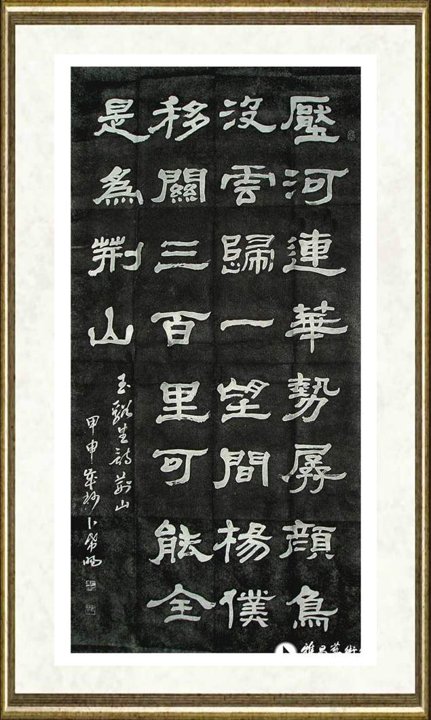 壓河連華勢孱顔鳥
沒雲歸一望間楊僕
移關三百里可能全
是為荆山
玉谿生詩荆山
甲申歲杪卜希暘
雅昌藝術